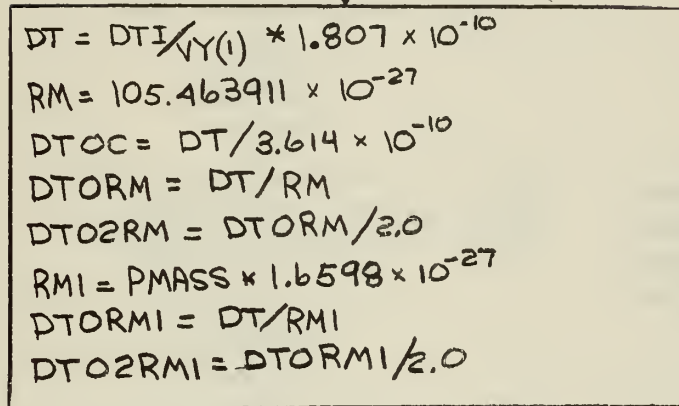 DT = DTI/VY(1) * 1.807 × 10^-10
RM = 105.463911 × 10^-27
DTOC = DT/3.614 × 10^-10
DTORM = DT/RM
DTO2RM = DTORM/2.0
RM1 = PMASS * 1.6598 × 10^-27
DTORM1 = DT/RM1
DTO2RM1 = DTORM1/2.0